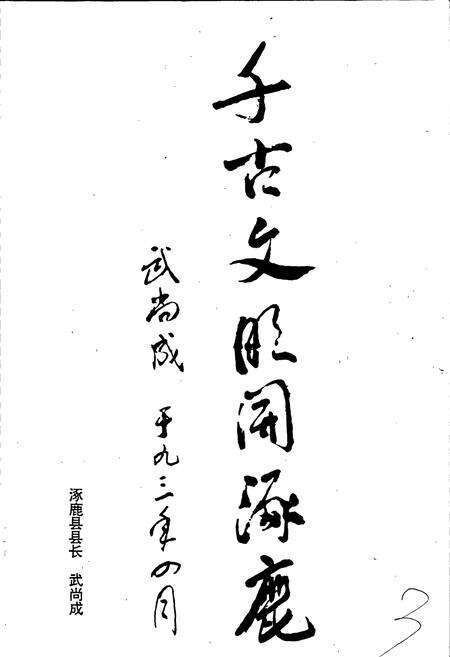 千古文明開涿鹿
武尚成 于九三年四月
涿鹿县县长 武尚成
3